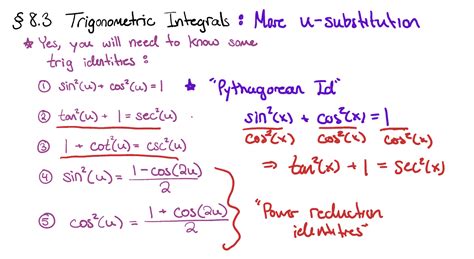 § 8.3 Trigonometric Integrals : More u-substitution
★ Yes, you will need to know some
trig identities :
① sin²(u) + cos²(u) = 1 ★ "Pythagorean Id"
② tan²(u) + 1 = sec²(u)
③ 1 + cot²(u) = csc²(u)
④ sin²(u) = 1 - cos(2u) / 2
⑤ cos²(u) = 1 + cos(2u) / 2
sin²(x) + cos²(x) = 1
cos²(x) cos²(x) cos²(x)
⇒ tan²(x) + 1 = sec²(x)
"Power reduction
identities"